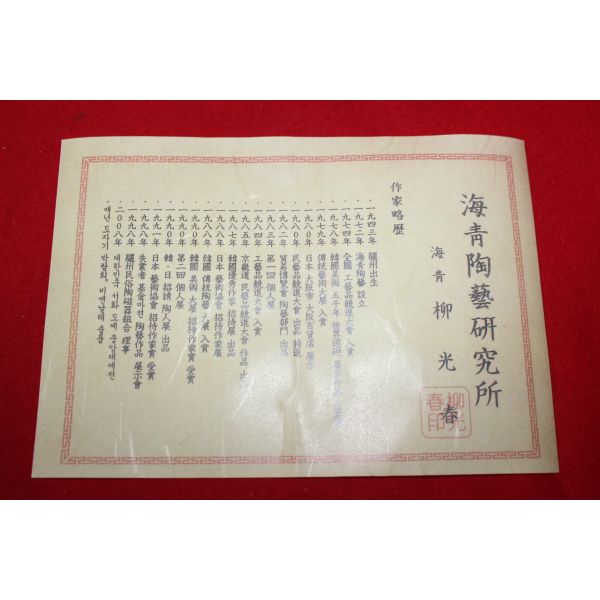 海青陶藝硏究所
海青 柳光春
柳光春印
作家略歷
·一九四三年 驪州出生
·一九七二年 海青陶藝 設立
·一九七四年 全國工藝品競進大會 入賞
·一九七八年 韓國美術 五十年
·一九七九年 傳統藝術大展 入賞
·一九八〇年 日本 大阪市 大阪百貨店 展示
·一九八〇年 民藝品競進大會 出品 特選
·一九八二年 貿易博覽會 陶藝部門 出品
·一九八三年 第一回 個人展
·一九八四年 工藝品競進大會 入賞
·一九八五年 京畿道 民藝品競進大會 作品 出品
·一九八七年 韓國優秀作家 招待展 出品
·一九八八年 日本 藝術協會 招待作家展
·一九八八年 韓國 傳統陶藝 大展 入賞
·一九九〇年 韓國美術 大展 招待作家賞 受賞
·一九九〇年 第二回 個人展
·一九九〇年 韓·日 招請 陶人展 出品
·一九九一年 日本 藝術協會 招待作家賞 受賞
·一九九八年 失業者 基金마련 陶藝作品 展示會
·一九九八年 驪州民俗陶磁器組合 理事
·二〇〇八年 대한민국 서화 도예
·매년 도자기 박람회, 비엔날레 출품